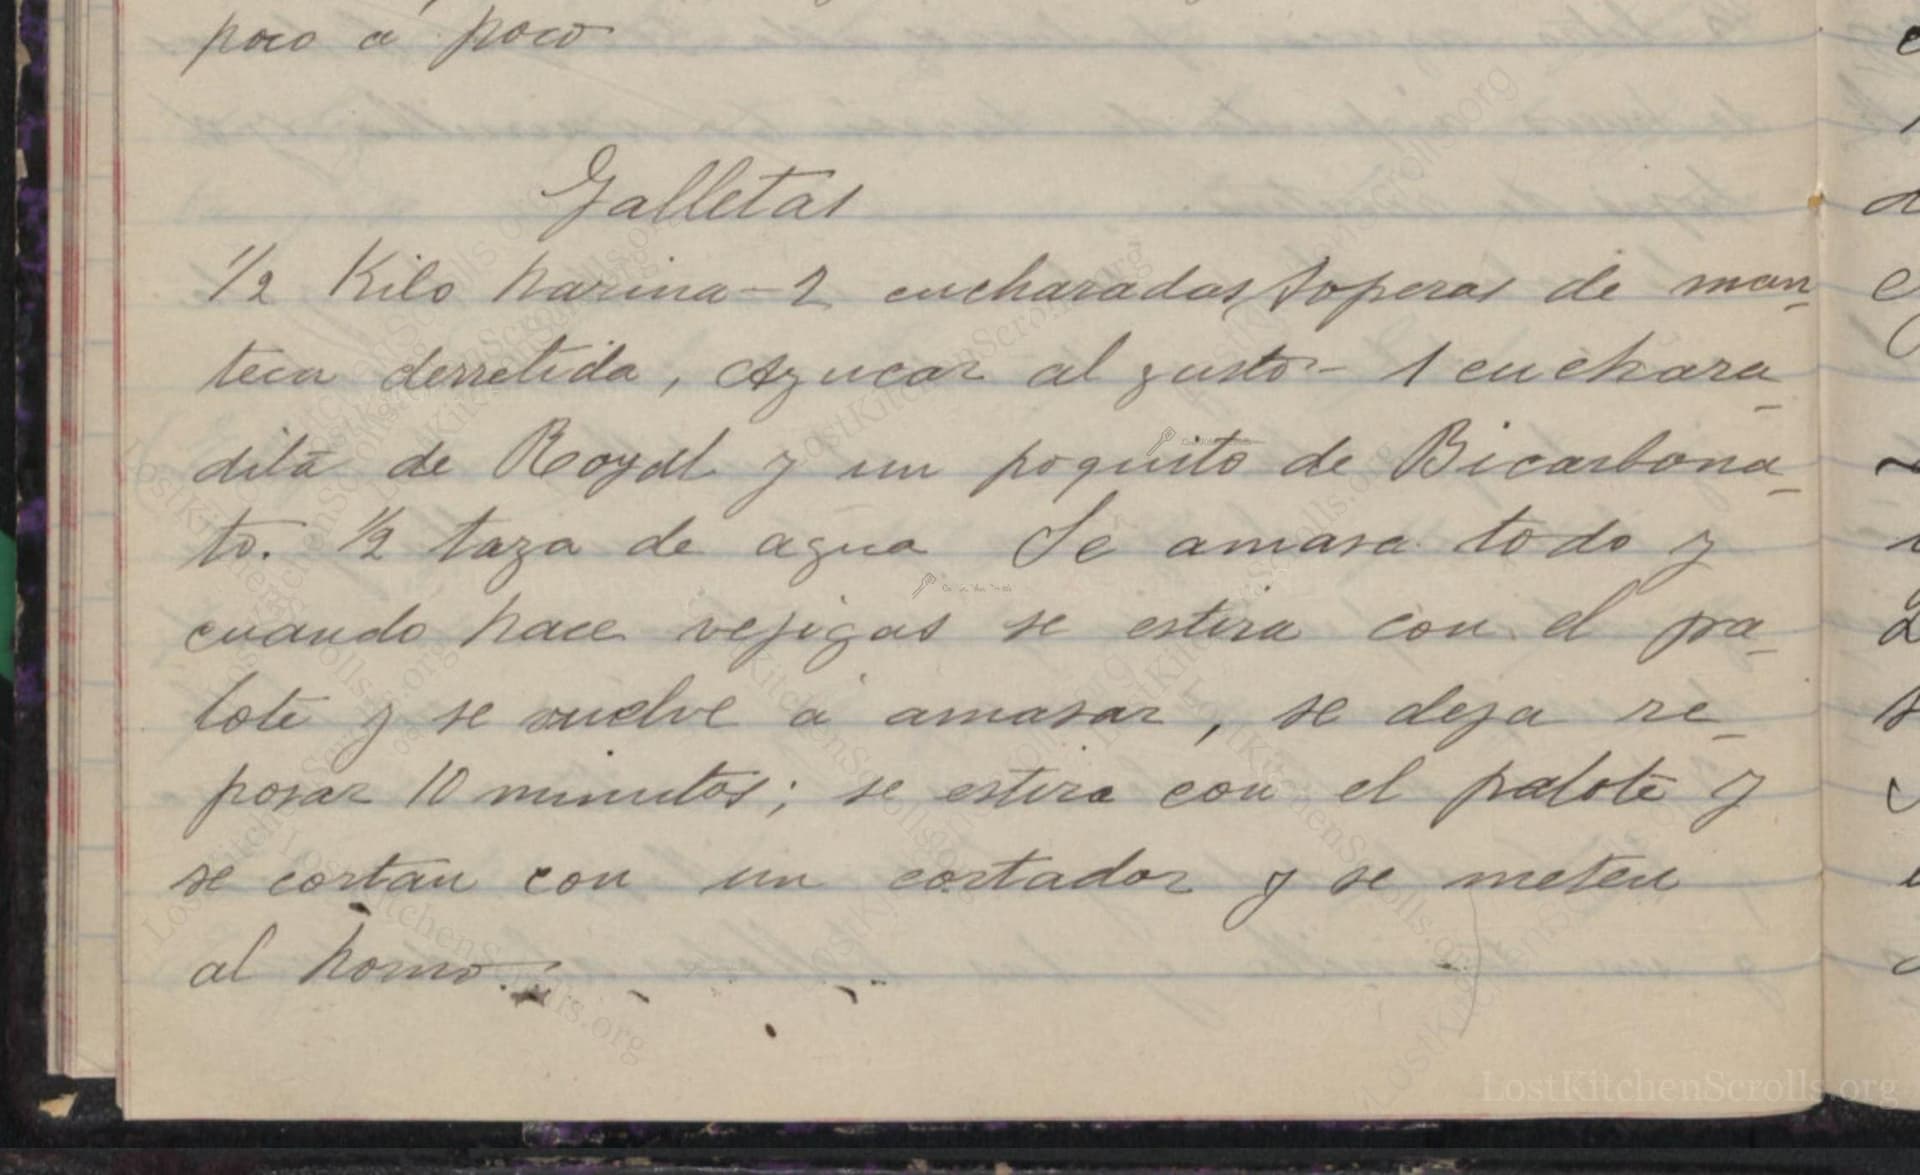 poco a poco
Galletas
1/2 Kilo harina - 2 cucharadas soperas de man-
teca derretida, Azucar al gusto - 1 cuchara-
dita de Royal y un poquito de Bicarbona-
to. 1/2 taza de agua Se amasa todo y
cuando hace vejigas se estira con el pa-
lote y se vuelve a amasar, se deja re-
posar 10 minutos; se estira con el palote y
se cortan con un cortador y se meten
al horno.
LostKitchenScrolls.org